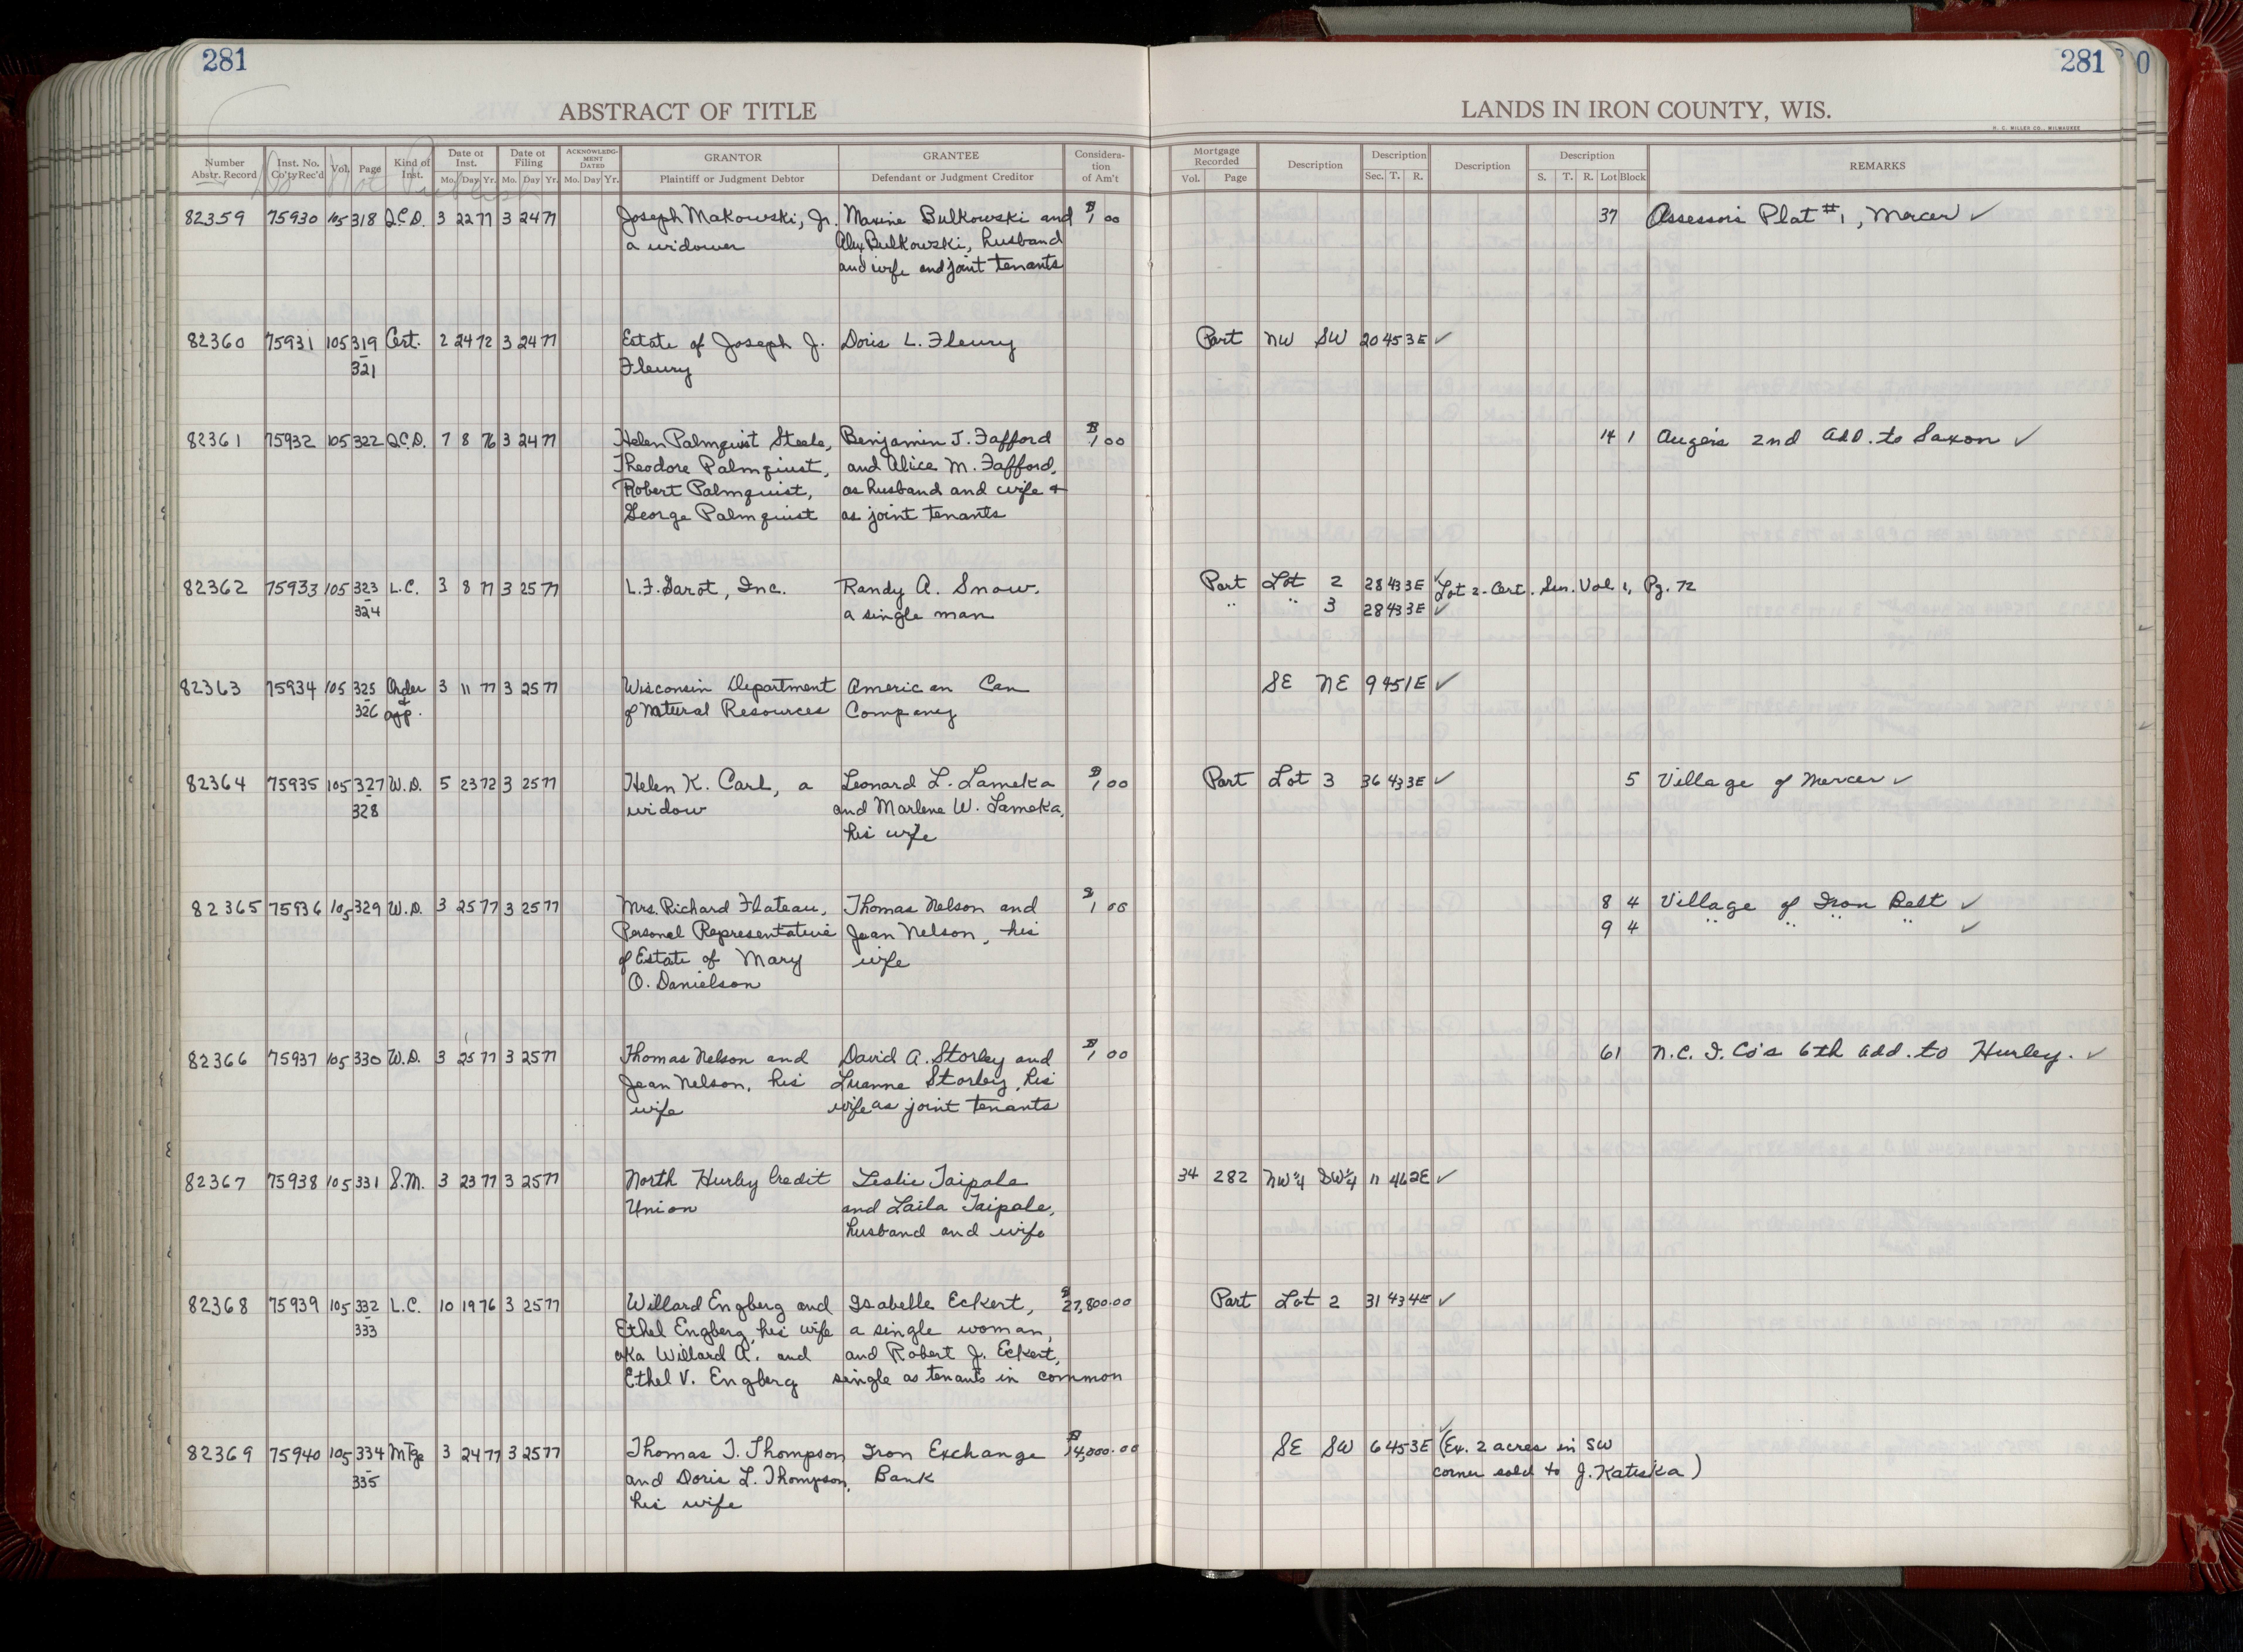 281
281
ABSTRACT OF TITLE
LANDS IN IRON COUNTY, WIS.
H. C. MILLER CO., MILWAUKEE
Number Abstr. Record | Inst. No. Co'ty Rec'd | Vol. | Page | Kind of Inst. | Date of Inst. Mo. Day Yr. | Date of Filing Mo. Day Yr. | ACKNOWLEDGMENT DATED Mo. Day Yr. | GRANTOR Plaintiff or Judgment Debtor | GRANTEE Defendant or Judgment Creditor | Consideration of Am't | Mortgage Recorded Vol. Page | Description | Description Sec. T. R. | Description | Description S. T. R. Lot Block | REMARKS
82359 75930 105 318 Q.C.D. 3 22 77 3 24 77 Joseph Makowski, Jr. Maxine Bulkowski and $1 00 37 Assessors Plat #1, Mercer ✓
a widower Alex Bulkowski, husband
and wife and joint tenants
82360 75931 105 319 Cert. 2 24 72 3 24 77 Estate of Joseph J. Doris L. Fleury Part NW SW 20 45 3E ✓
- 321 Fleury
82361 75932 105 322 Q.C.D. 7 8 76 3 24 77 Helen Palmquist Steele, Benjamin J. Fafford $1 00 14 1 Auger's 2nd Add. to Saxon ✓
Theodore Palmquist, and Alice M. Fafford,
Robert Palmquist, as husband and wife +
George Palmquist as joint tenants
82362 75933 105 323 L.C. 3 8 77 3 25 77 L.F. Garot, Inc. Randy A. Snow, Part Lot 2 28 43 3E ✓ Lot 2 - Cert. Sur. Vol 1, Pg. 72
- 324 a single man " " 3 28 43 3E ✓
82363 75934 105 325 Order 3 11 77 3 25 77 Wisconsin Department American Can SE NE 9 45 1E ✓
- 326 & app. of Natural Resources Company
82364 75935 105 327 W.D. 5 23 72 3 25 77 Helen K. Carl, a Leonard L. Lameka $1 00 Part Lot 3 36 43 3E ✓ 5 Village of Mercer ✓
- 328 widow and Marlene W. Lameka,
his wife
82365 75936 105 329 W.D. 3 25 77 3 25 77 Mrs. Richard Flateau, Thomas Nelson and $1 00 8 4 Village of Iron Belt ✓
Personal Representative Jean Nelson, his 9 4 " " " " ✓
of Estate of Mary wife
O. Danielson
82366 75937 105 330 W.D. 3 25 77 3 25 77 Thomas Nelson and David A. Storley and $1 00 61 N.C.I. Co's 6th Add. to Hurley. ✓
Jean Nelson, his Luanne Storley, his
wife wife as joint tenants
82367 75938 105 331 S.M. 3 23 77 3 25 77 North Hurley Credit Leslie Taipale 34 282 NW¼ SW¼ 11 46 2E ✓
Union and Laila Taipale,
husband and wife
82368 75939 105 332 L.C. 10 19 76 3 25 77 Willard Engberg and Isabelle Eckert, $27,800.00 Part Lot 2 31 43 4E ✓
- 333 Ethel Engberg, his wife a single woman,
aka Willard A. and and Robert J. Eckert,
Ethel V. Engberg single as tenants in common
82369 75940 105 334 Mtge 3 24 77 3 25 77 Thomas T. Thompson Iron Exchange $14,000.00 SE SW 6 45 3E ✓ (Ex. 2 acres in SW
- 335 and Doris L. Thompson, Bank corner sold to J. Kateska)
his wife